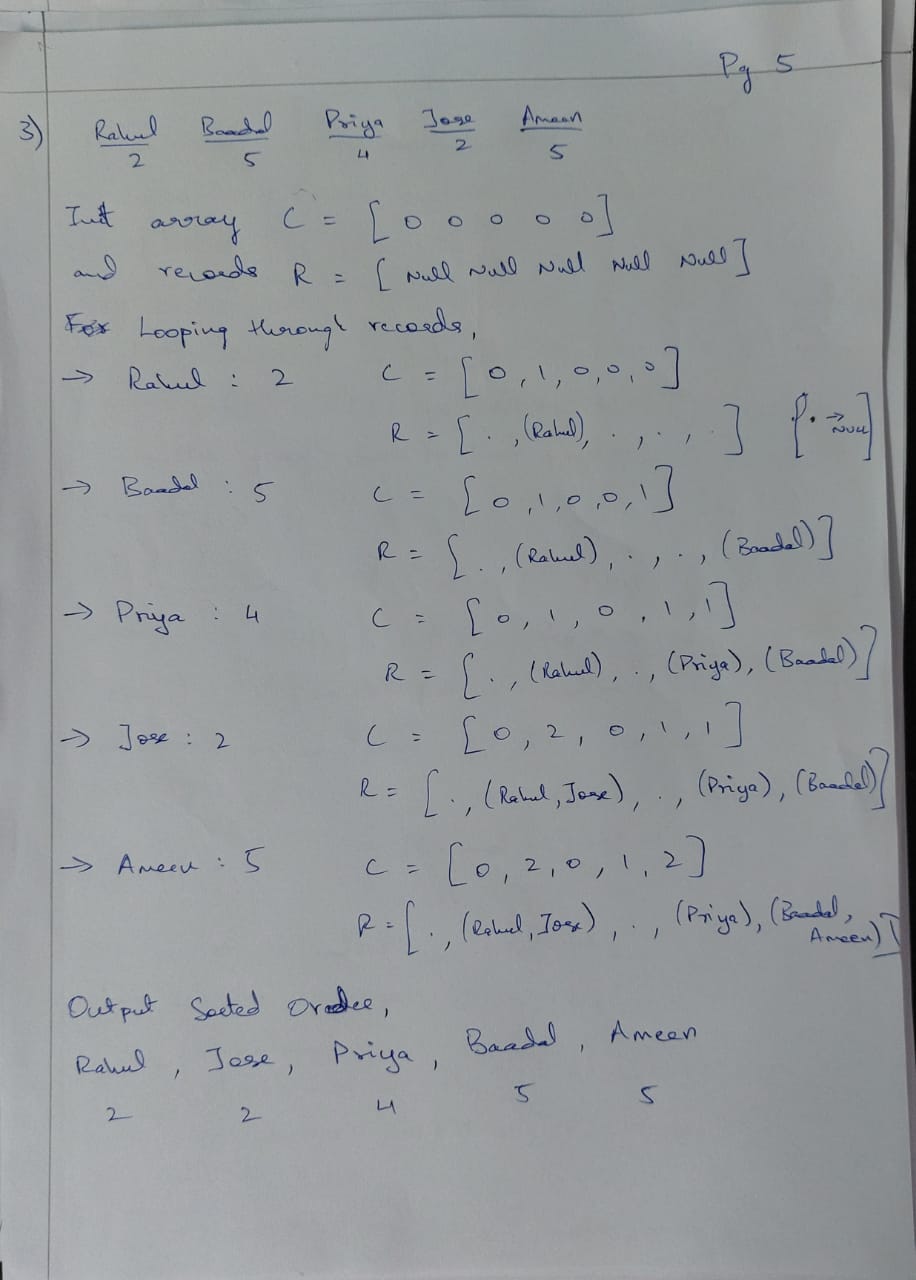 Pg 5
3) Rahul Baadal Priya Jose Ameen
2 5 4 2 5
Init array C = [ 0 0 0 0 0 ]
and records R = [ Null Null Null Null Null ]
Looping through records,
→ Rahul : 2 C = [ 0, 1, 0, 0, 0 ]
R = [ . , (Rahul), . , . , . ] [ . → NULL ]
→ Baadal : 5 C = [ 0, 1, 0, 0, 1 ]
R = [ . , (Rahul), . , . , (Baadal) ]
→ Priya : 4 C = [ 0, 1, 0, 1, 1 ]
R = [ . , (Rahul), . , (Priya), (Baadal) ]
→ Jose : 2 C = [ 0, 2, 0, 1, 1 ]
R = [ . , (Rahul, Jose), . , (Priya), (Baadal) ]
→ Ameen : 5 C = [ 0, 2, 0, 1, 2 ]
R = [ . , (Rahul, Jose), . , (Priya), (Baadal,
Ameen) ]
Output Sorted Order,
Rahul , Jose , Priya , Baadal , Ameen
2 2 4 5 5